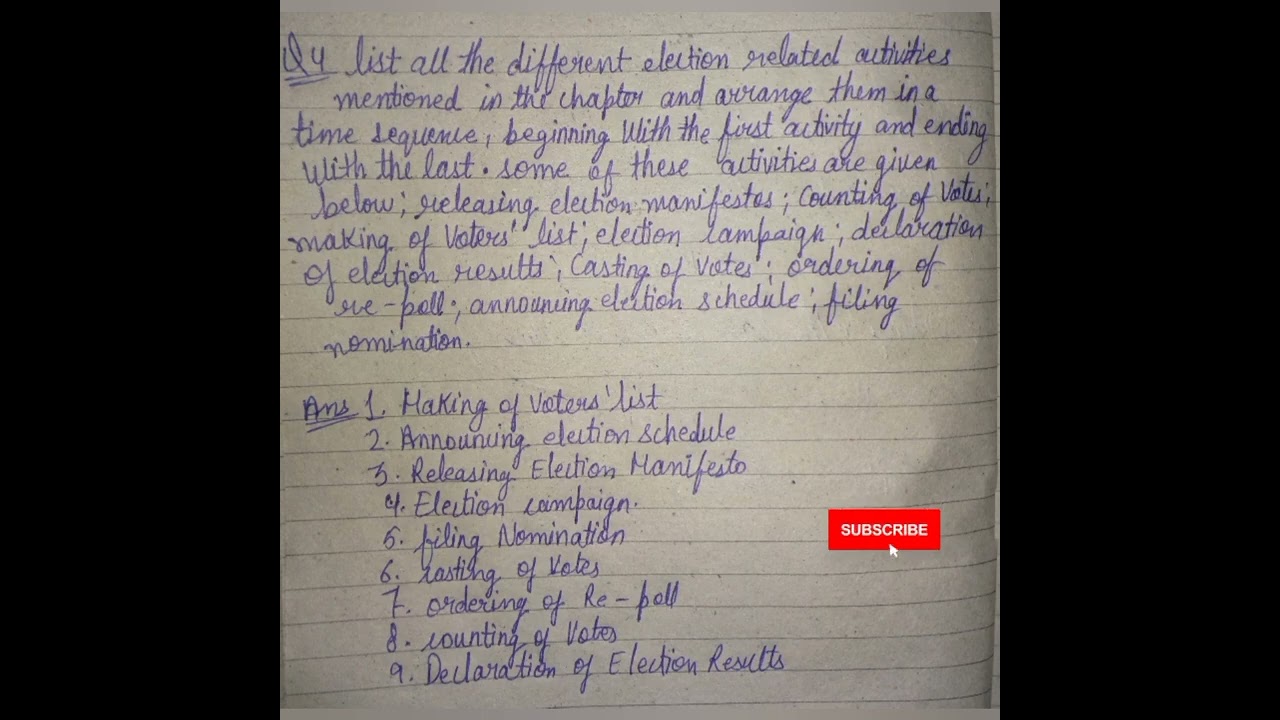 Q4 list all the different election related activities
mentioned in the chapter and arrange them in a
time sequence, beginning With the first activity and ending
With the last. some of these activities are given
below; releasing election manifestos; Counting of Votes;
making of Voters' list; election campaign; declaration
of election results; Casting of Votes; ordering of
re-poll; announcing election schedule; filing
nomination.
Ans 1. Making of Voters' list
2. Announcing election schedule
3. Releasing Election Manifesto
4. Election campaign.
5. filing Nomination
6. casting of Votes
7. ordering of Re-poll
8. counting of Votes
9. Declaration of Election Results
SUBSCRIBE